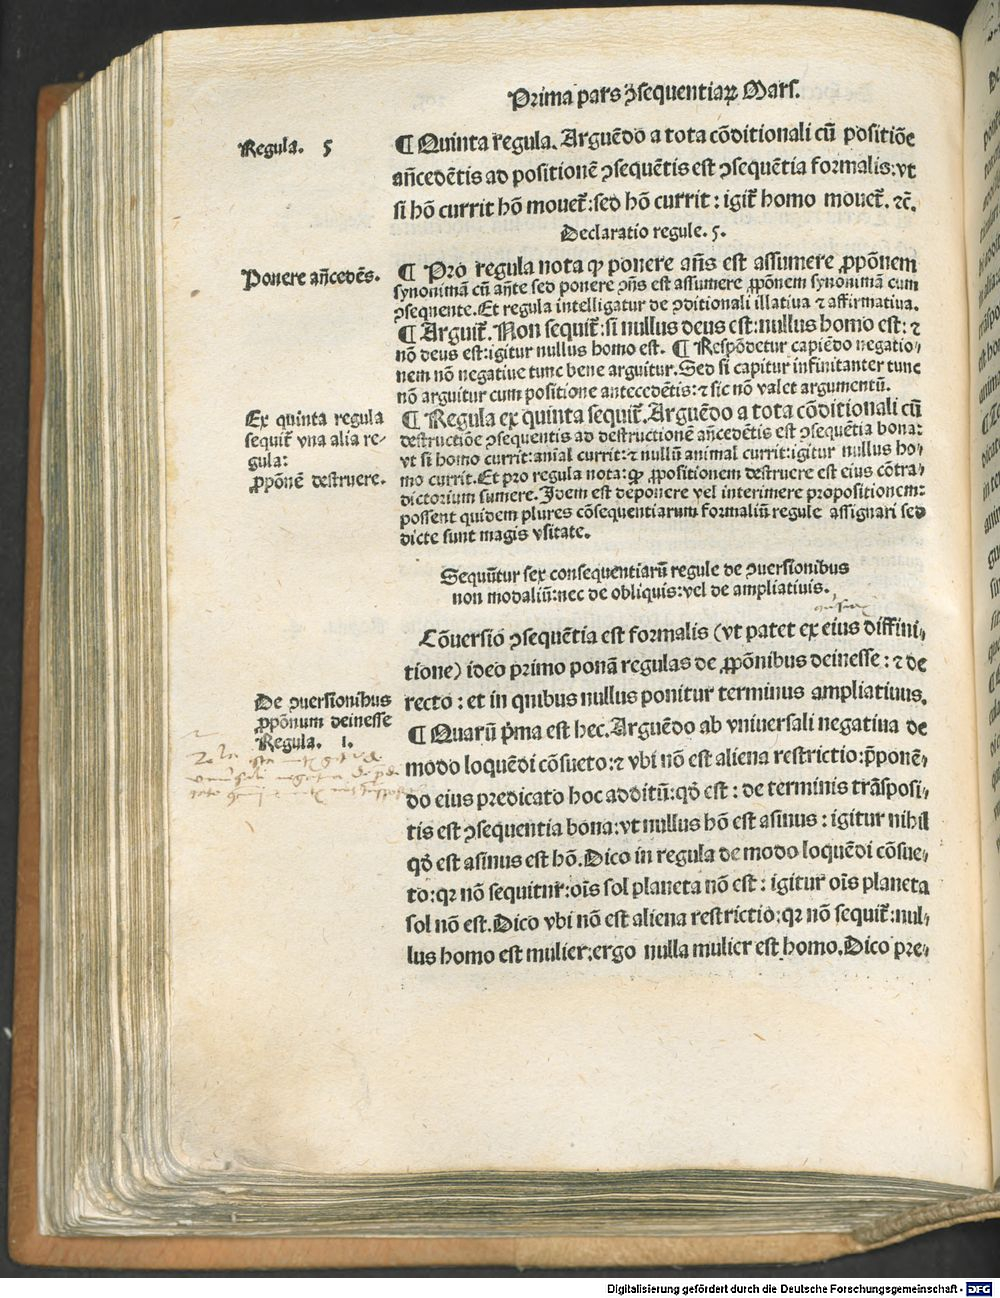 Prima pars ꝯsequentiaꝝ Mars.
Regula. 5
¶ Quinta regula. Arguẽdo a tota cõditionali cũ positiõe
añcedẽtis ad positionẽ ꝯsequẽtis est ꝯsequẽtia formalis: vt
si hõ currit hõ mouet᷑: sed hõ currit: igit᷑ homo mouet᷑. ⁊c̃.
Declaratio regule. 5.
Ponere añcedẽs.
¶ Pro regula nota ꝙ ponere añs est assumere ꝓpõnem
synonimã cũ añte sed ponere ꝯñs est assumere ꝓpõnem synonimã cum
ꝯsequente. Et regula intelligatur de ꝯditionali illatiua ⁊ affirmatiua.
¶ Arguit᷑. Non sequit᷑: si nullus deus est: nullus homo est: ⁊
nõ deus est: igitur nullus homo est. ¶ Respõdetur capiẽdo negatio-
nem nõ negatiue tunc bene arguitur. Sed si capitur infinitanter tunc
nõ arguitur cum positione antecedẽtis: ⁊ sic nõ valet argumentũ.
Ex quinta regula
sequit᷑ vna alia re-
gula:
ꝓpõnẽ destruere.
¶ Regula ex quinta sequit᷑. Arguẽdo a tota cõditionali cũ
destructiõe ꝯsequentis ad destructionẽ añcedẽtis est ꝯsequẽtia bona:
vt si homo currit: anial currit: ⁊ nullũ animal currit: igitur nullus ho-
mo currit. Et pro regula nota: ꝙ ꝓpositionem destruere est eius cõtra-
dictorium sumere. Idem est deponere vel interimere propositionem:
possent quidem plures cõsequentiarum formaliũ regule assignari sed
dicte sunt magis vsitate.
Sequũtur sex consequentiarũ regule de ꝯuersionibus
non modaliũ: nec de obliquis: vel de ampliatiuis.
Cõuersio ꝯsequẽtia est formalis (vt patet ex eius diffini-
tione) ideo primo ponã regulas de ꝓpõnibus deinesse: ⁊ de
recto: et in quibus nullus ponitur terminus ampliatiuus.
De ꝯuersionibus
ꝓpõnum deinesse
Regula. 1.
¶ Quarũ p̃ma est hec. Arguẽdo ab vniuersali negatiua de
modo loquẽdi cõsueto: ⁊ vbi nõ est aliena restrictio: p̃ponẽ-
do eius predicato hoc additũ: qđ est: de terminis trãsposi-
tis est ꝯsequentia bona: vt nullus hõ est asinus: igitur nihil
qđ est asinus est hõ. Dico in regula de modo loquẽdi cõsue-
to: qꝛ nõ sequitur: oĩs sol planeta nõ est: igitur oĩs planeta
sol nõ est. Dico vbi nõ est aliena restrictio: qꝛ nõ sequit᷑: nul-
lus homo est mulier: ergo nulla mulier est homo. Dico pre-
Digitalisierung gefördert durch die Deutsche Forschungsgemeinschaft - DFG